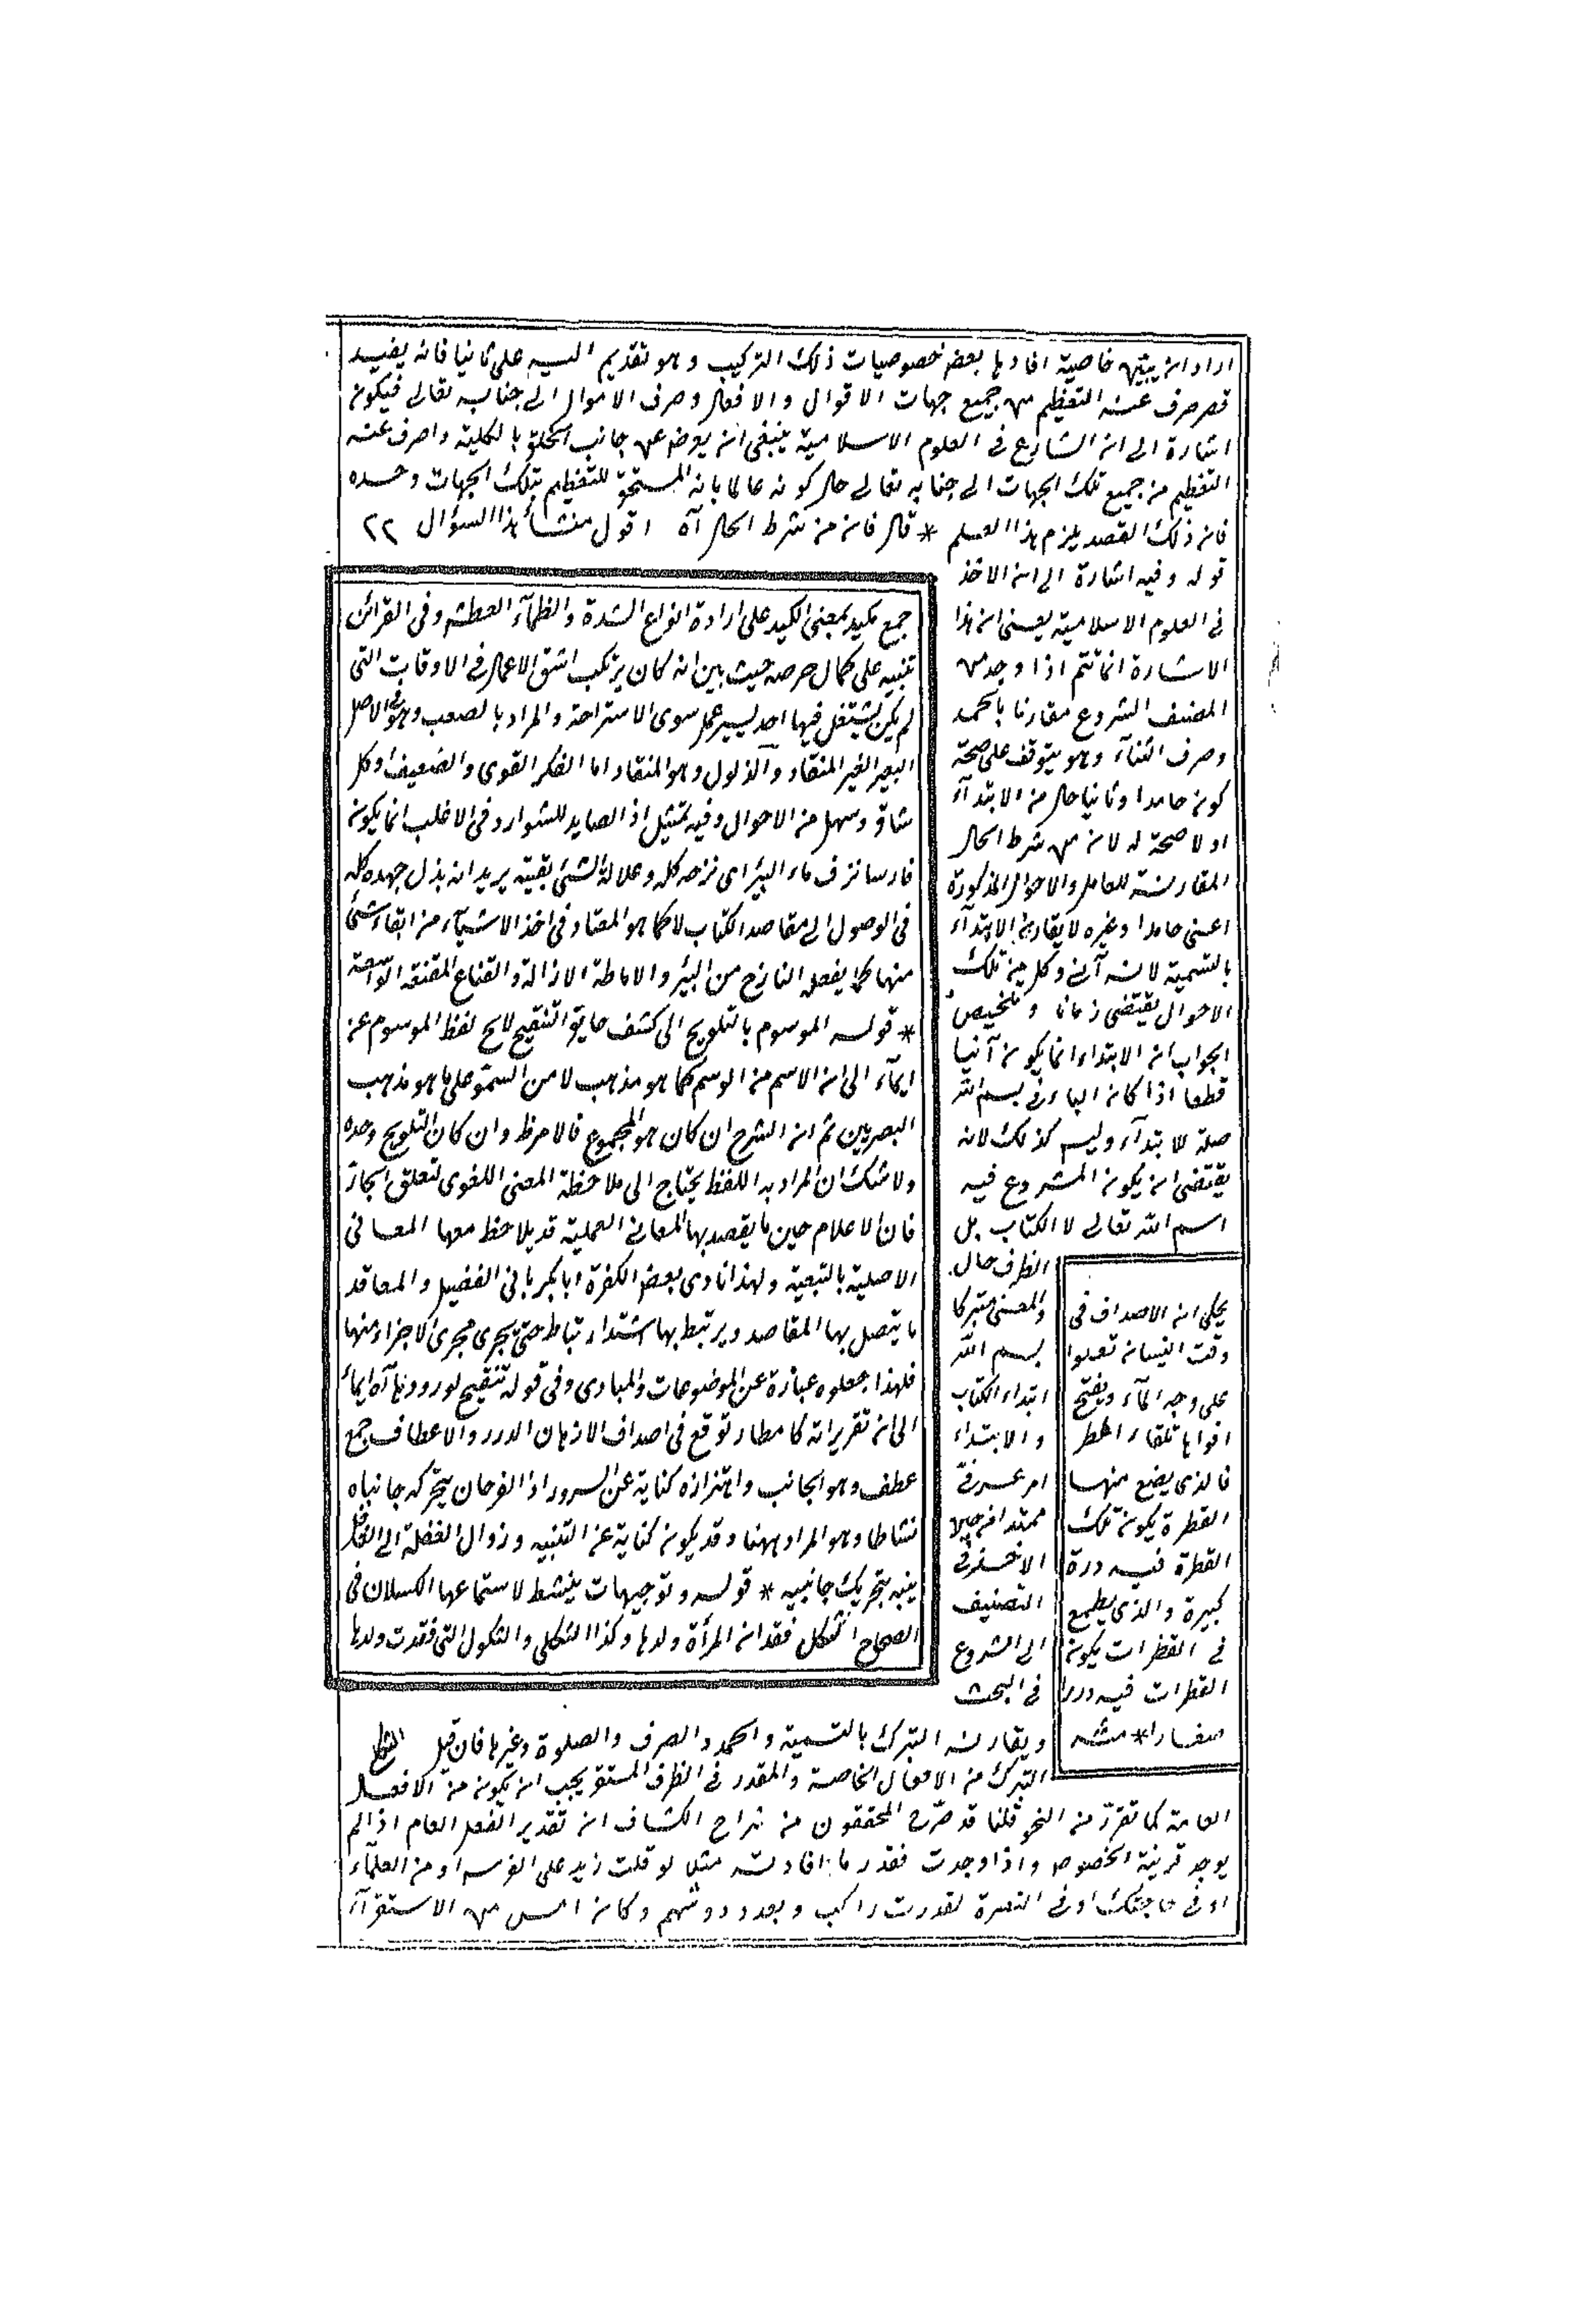 اراد ان يبين خاصية افادها بعض خصوصيات ذلك التركيب وهو تقديم اليه على ثانيا فانه يفيد
قصر صرف عنه التعظيم من جميع جهات الاقوال والافعال وصرف الاموال الى جنابه تعالى فيكون
اشارة الى ان الشارع فى العلوم الاسلامية ينبغى ان يعرض عن جانب الخلق بالكلية واصرف عنه
التعظيم من جميع تلك الجهات الى جنابه تعالى حال كونه عالما بانه المستحق للتعظيم بتلك الجهات وحده
فان ذلك القصد يلزم هذا العلم * قال فان من شرط الحال آه اقول منشأ هذا السؤال ٢٢
قوله وفيه اشارة الى ان الاخذ
فى العلوم الاسلامية يعنى ان هذا
الاشارة انما تتم اذا وجد من
المصنف الشروع مقارنا بالحمد
وصرف الثناء وهو يتوقف على صحة
كون حامدا وثانيا حال من الابتداء
اولا صحة له لان من شرط الحال
المقارنة للعامل والاحوال المذكورة
اعنى حامدا وغيره لا يقارن الابتداء
بالتسمية لانه آنى وكل من تلك
الاحوال يقتضى زمانا وتلخيص
الجواب ان الابتداء انما يكون آنيا
قطعا اذا كان الباء فى بسم الله
صلة للابتداء وليس كذلك لانه
يقتضى ان يكون المشروع فيه
اسم الله تعالى لا الكتاب بل
الظرف حال
والمعنى متبركا
بسم الله
ابتداء الكتاب
والابتداء
امر عرفى
ممتد من حين
الاخذ فى
التصنيف
الى الشروع
فى البحث
ويقارنه التبرك بالتسمية والحمد والصرف والصلوة وغيرها فان قيل
التبرك من الافعال الخاصة والمقدر فى الظرف المستقر يجب ان يكون من الافعال
العامة كما تقرر من النحو قلنا قد صرح المحققون من شراح الكشاف ان تقدير الفعل العام اذا لم
يوجد قرينة الخصوص واذا وجدت فقدر ما افادته مثلا لو قلت زيد على الفرس او من العلماء
او فى حاجتك او فى البصرة لقدرت راكب ومعدود ومنهم وكان امس من الاستقراء
يحكى ان الاصداف فى
وقت النيسان تعلوا
على وجه الماء ويفتح
افواها تلقاء المطر
فالذى يقع منها
القطرة يكون تلك
القطرة فيه درة
كبيرة والذى يطمع
فى القطرات يكون
القطرات فيه دررا
صغارا * منه
جمع مكيد بمعنى الكيد على ارادة انواع الشدة والظمآء العطش وفى القرائن
تنبيه على كمال حرصه حيث بين انه كان يرتكب اشق الاعمال فى الاوقات التى
لم يكن يشتغل فيها احد ليسير عمل سوى الاستراحة والمراد بالصعب وهو فى الاصل
البعير الغير المنقاد والذلول وهو المنقاد اما الفكر القوى والضعيف او كل
شاق وسهل من الاحوال وفيه تمثيل اذ الصايد للشوارد فى الاغلب انما يكون
فارسا نزف ماء البئر اى نزحه كله وعلالة الشئ بقيته يريد انه بذل جهده كله
فى الوصول الى مقاصد الكتاب لا كما هو المعتاد فى اخذ الاشيآء من ابقاء شئ
منها كما يفعله النازح من البئر والاماطة الازالة والقناع المقنعة الواسعة
* قوله الموسوم بالتلويح الى كشف حقايق التنقيح لايح لفظ الموسوم عن
ايمآء الى ان الاسم من الوسم كما هو مذهب لا من السمو على ما هو مذهب
البصريين ثم ان الشرح ان كان هو المجموع فالامر ظ وان كان التلويح وحده
ولا شك ان المراد به اللفظ يحتاج الى ملاحظة المعنى اللغوى لتعلق الجار
فان الاعلام حين ما يقصد بها المعانى العملية قد يلاحظ معها المعانى
الاصلية بالتبعية ولهذا نادى بعض الكفرة ابا بكر بابى الفضيل والمعاقد
ما يتصل بها المقاصد ويرتبط بها اشتد ارتباط حتى يجرى مجرى الاجزاء منها
فلهذا جعلوه عبارة عن الموضوعات والمبادى وفى قوله تنقيح لورودها آه ايماء
الى ان تقريراته كامطار توقع فى اصداف الاذهان الدرر والاعطاف جمع
عطف وهو الجانب واهتزازه كناية عن السرور اذ الفرحان يتحرك جانباه
نشاطا وهو المراد ههنا وقد يكون كناية عن التنبيه وزوال الغفلة اذ الغافل
ينبه بتحريك جانبيه * قوله وتوجيهات ينشط لاستماعها الكسلان فى
الصحاح الثكل فقدان المرأة ولدها وكذا الثكلى والثكول التى فقدت ولدها